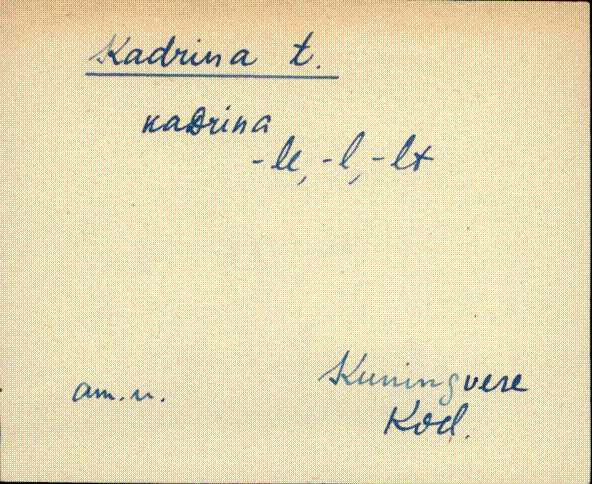 Kadrina t.
kaDrina
-le, -l, -lt
am. n.
Kuningvere
Kod.